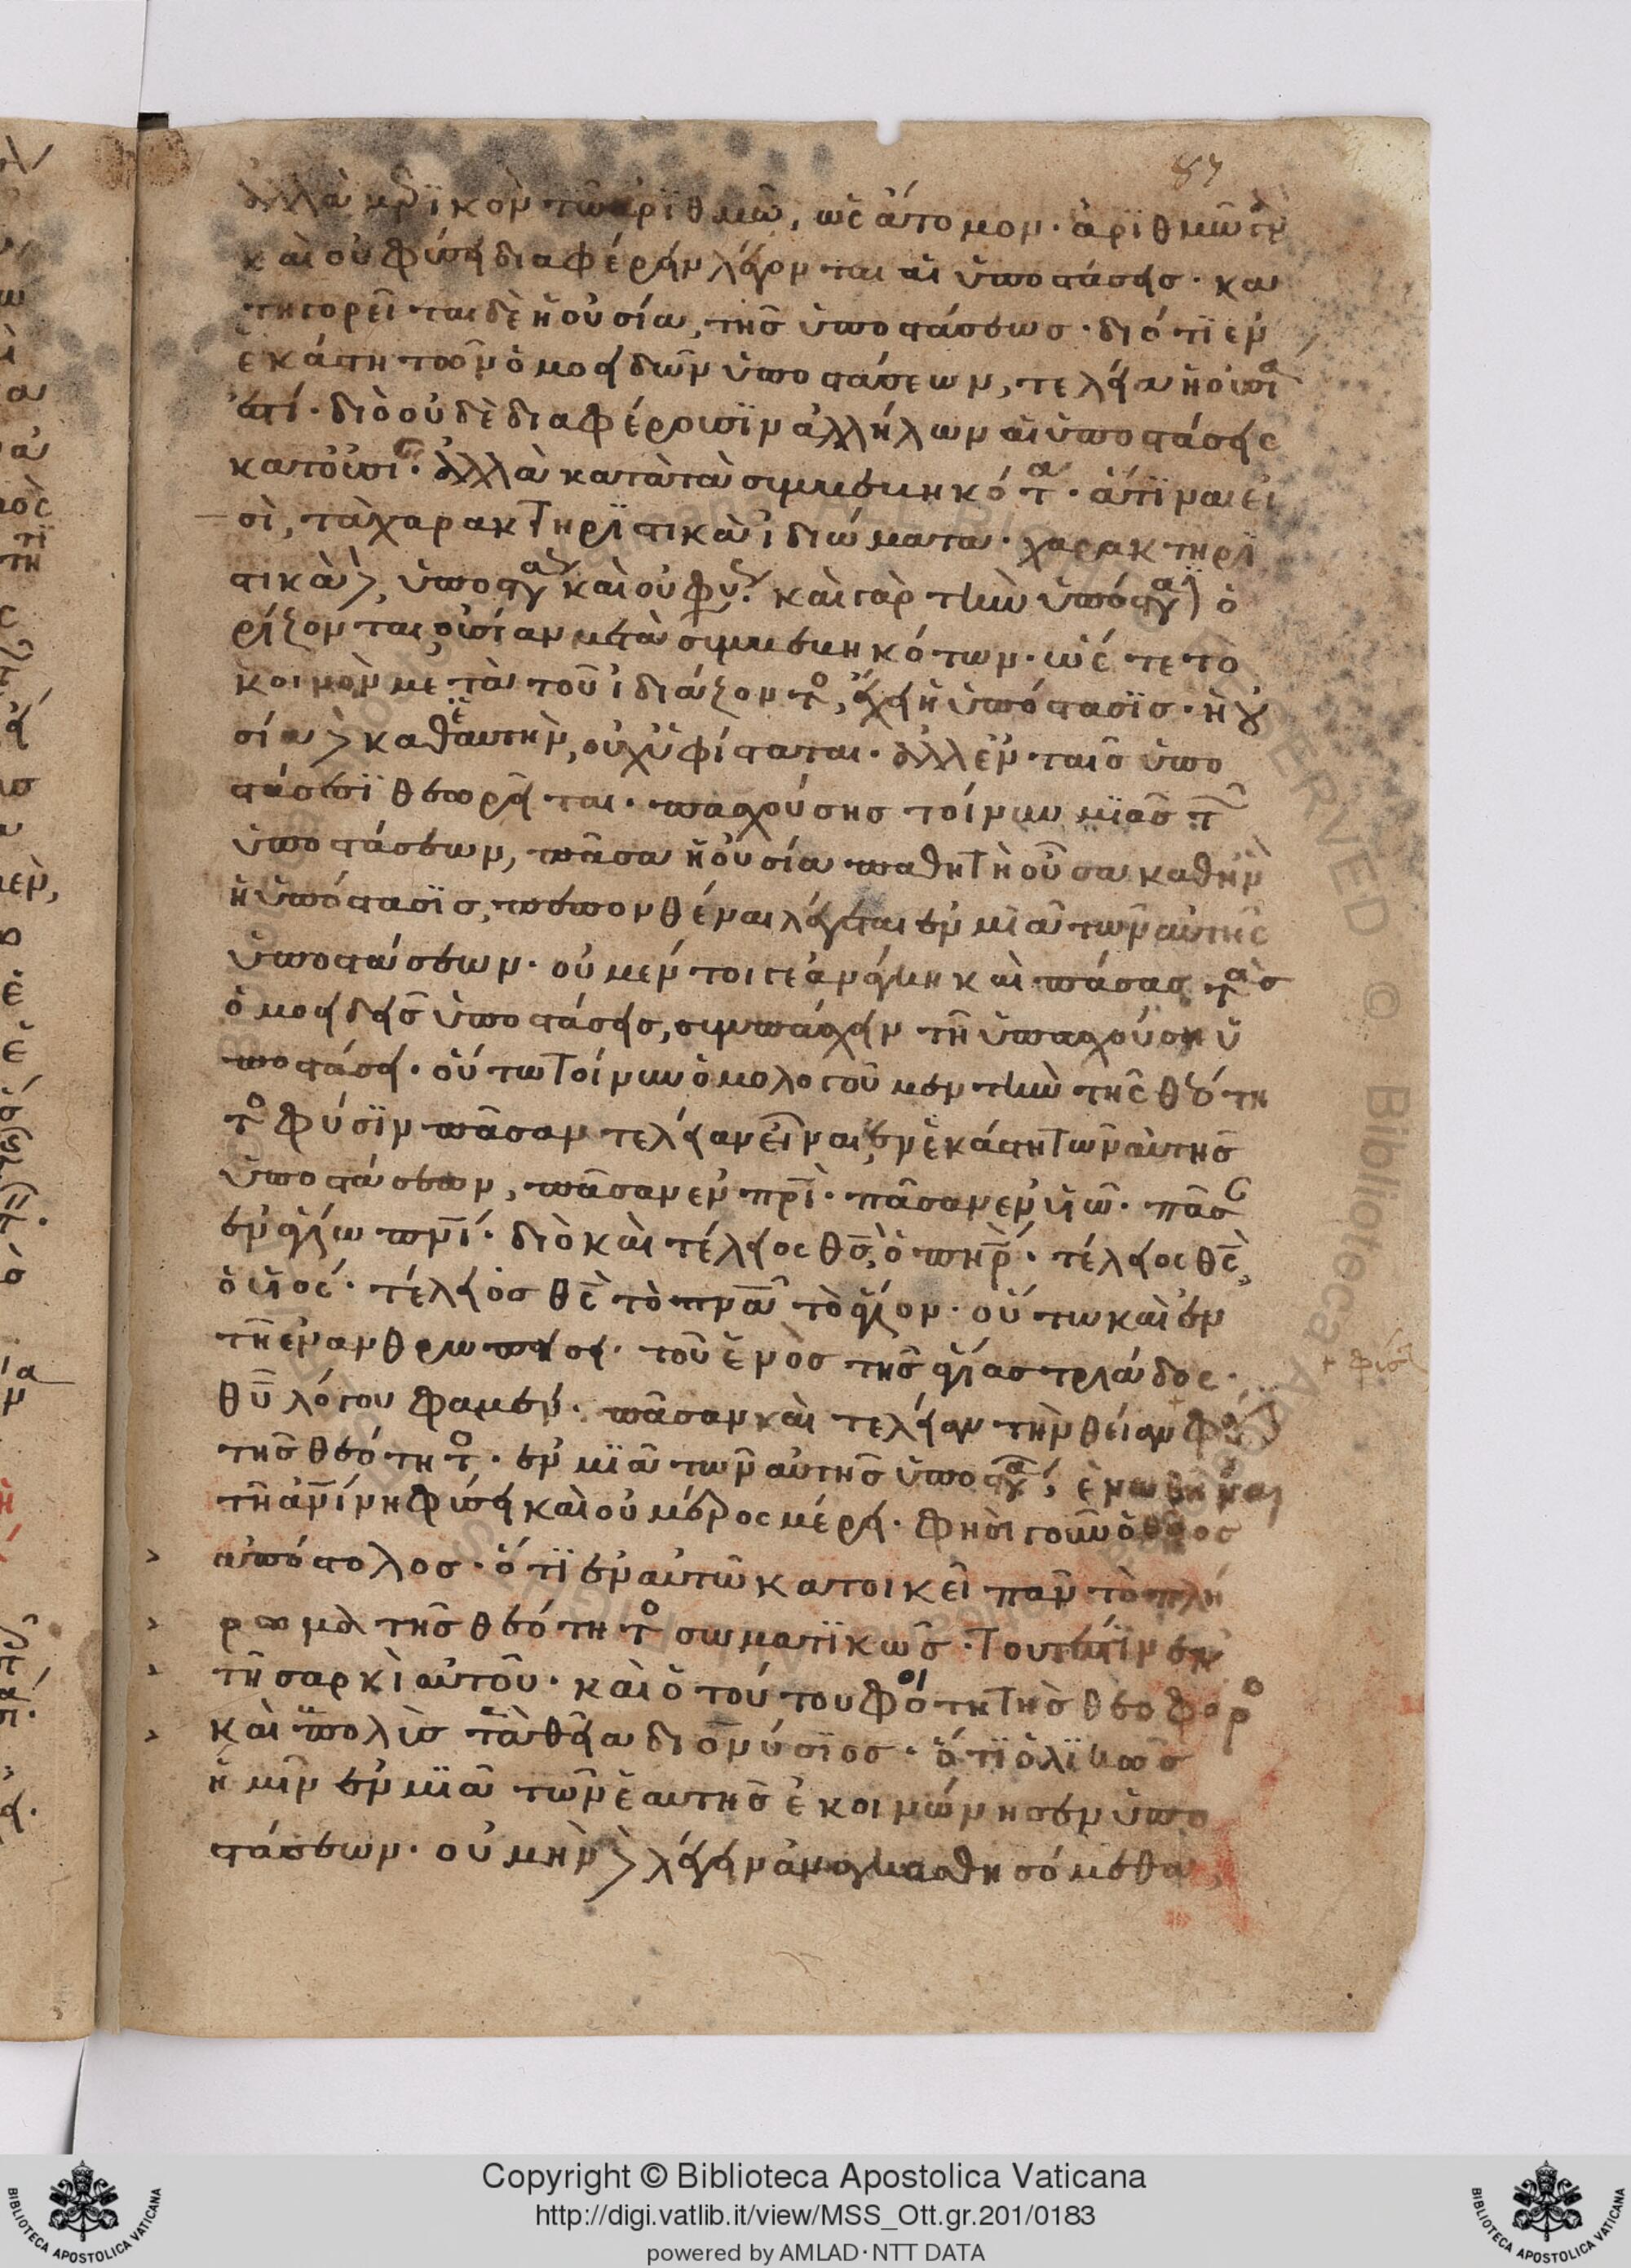 87
ἀλλὰ μερικὸν τῶ ἀριθμῶ, ὡς ἄτομον· ἀριθμῶ γὰρ
καὶ οὐ φύσει διαφέρειν λέγονται αἱ ὑποστάσεις· κα
τηγορεῖται δὲ ἡ οὐσία, τῆς ὑποστάσεως· διότι ἐν
ἑκάστη τῶν ὁμοειδῶν ὑποστάσεων, τελεία ἡ οὐσία
ἐστί· διὸ οὐδὲ διαφέρουσιν ἀλλήλων αἱ ὑποστάσεις
κατ' οὐσίαν· ἀλλὰ κατὰ τὰ συμβεβηκότα· ἅτινα εἰ
σὶ, τὰ χαρακτηριστικὰ ἰδιώματα· χαρακτηρι
στικὰ δὲ, ὑποστάσεως καὶ οὐ φύσεως· καὶ γὰρ τὴν ὑπόστασιν ὁ
ρίζονται οὐσίαν μετὰ συμβεβηκότων· ὥστε τὸ
κοινὸν μετὰ τοῦ ἰδιάζοντος, ἔχει ἡ ὑπόστασις· ἡ οὐ
σία δὲ καθ' ἑαυτὴν, οὐχ ὑφίσταται· ἀλλ' ἐν ταῖς ὑπο
στάσεσι θεωρεῖται· πασχούσης τοίνυν μιᾶς τῶν
ὑποστάσεων, πᾶσα ἡ οὐσία παθητὴ οὖσα καθ' ἣν
ἡ ὑπόστασις, πεπονθέναι λέγεται ἐν μιᾶ τῶν αὐτῆς
ὑποστάσεων· οὐ μέντοι γε ἀνάγκη καὶ πάσας τὰς
ὁμοειδεῖς ὑποστάσεις, συμπάσχειν τῆ πασχούση ὑ
ποστάσει· οὕτω τοίνυν ὁμολογοῦμεν τὴν τῆς θεότη
τος φύσιν πᾶσαν τελείαν εἶναι ἐν ἑκάστη τῶν αὐτῆς
ὑποστάσεων, πᾶσαν ἐν πρὶ· πᾶσαν ἐν υἱῶ· πᾶσαν
ἐν ἁγίω πνί· διὸ καὶ τέλειος θς, ὁ πηρ· τέλειος θς,
ὁ υἱός· τέλειος θς τὸ πνα τὸ ἅγιον· οὕτω καὶ ἐν
τῆ ἐνανθρωπήσει τοῦ ἑνὸς τῆς ἁγίας τριάδος·
θυ λόγου φαμὲν· πᾶσαν καὶ τελείαν τὴν θείαν φύσιν
τῆς θεότητος· ἐν μιᾶ τῶν αὐτῆς ὑποστάσεων, ἑνωθῆναι
τῆ ἀνίνη φύσει καὶ οὐ μέρος μέρει· φησὶ γοῦν ὁ θεῖος
ἀπόστολος· ὅτι ἐν αὐτῶ κατοικεῖ πᾶν τὸ πλή
ρωμα τῆς θεότητος σωματικῶς· τουτέστιν ἐν
τῆ σαρκὶ αὐτοῦ· καὶ ὁ τούτου φοιτητὴς θεοφόρος
καὶ πολὺς τὰ θεῖα διονύσιος· ὅτι ὁλικῶς
ἡμῖν ἐν μιᾶ τῶν ἑαυτῆς ἐκοινώνησεν ὑπο
στάσεων· οὐ μὴν δὲ λέγειν ἀναγκασθησόμεθα
Copyright © Biblioteca Apostolica Vaticana
http://digi.vatlib.it/view/MSS_Ott.gr.201/0183
powered by AMLAD·NTT DATA